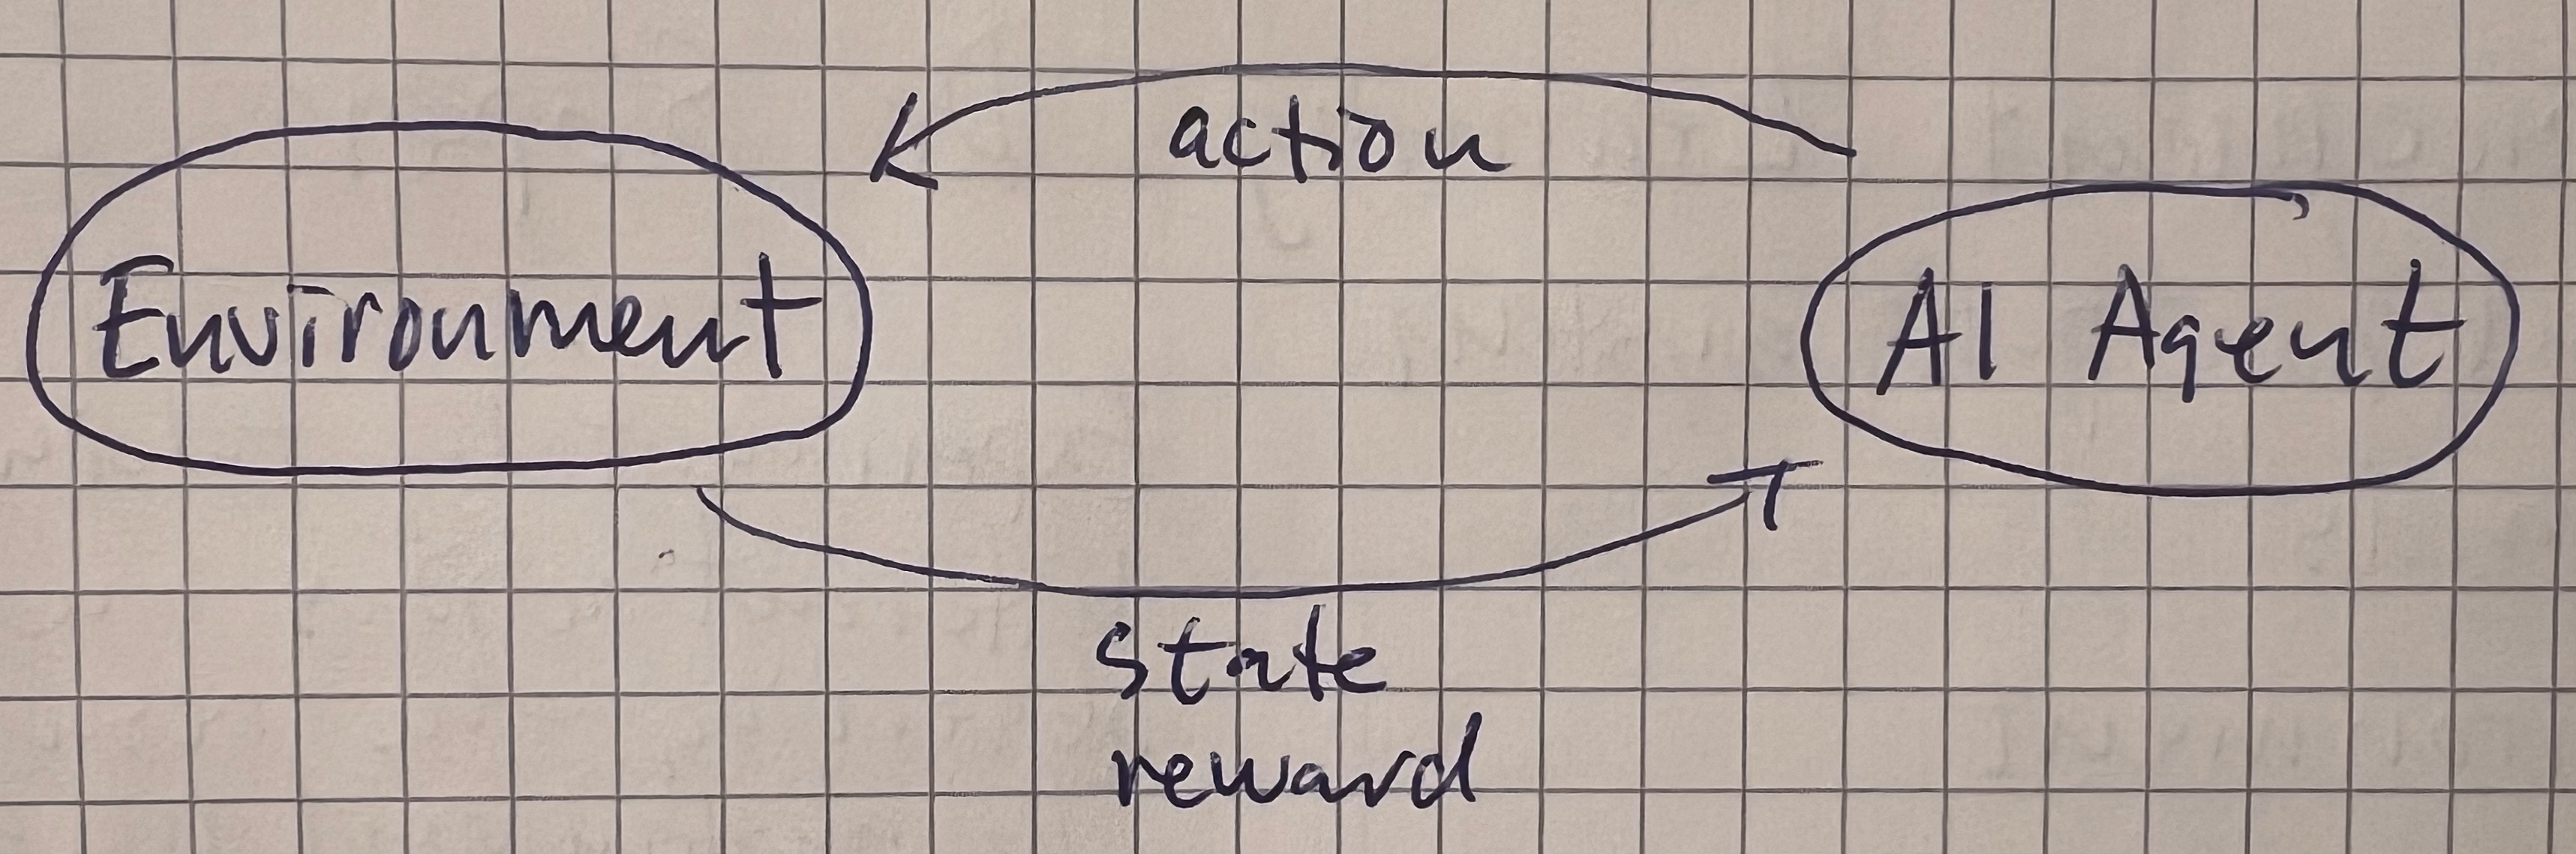 action
Environment
AI Agent
state
reward